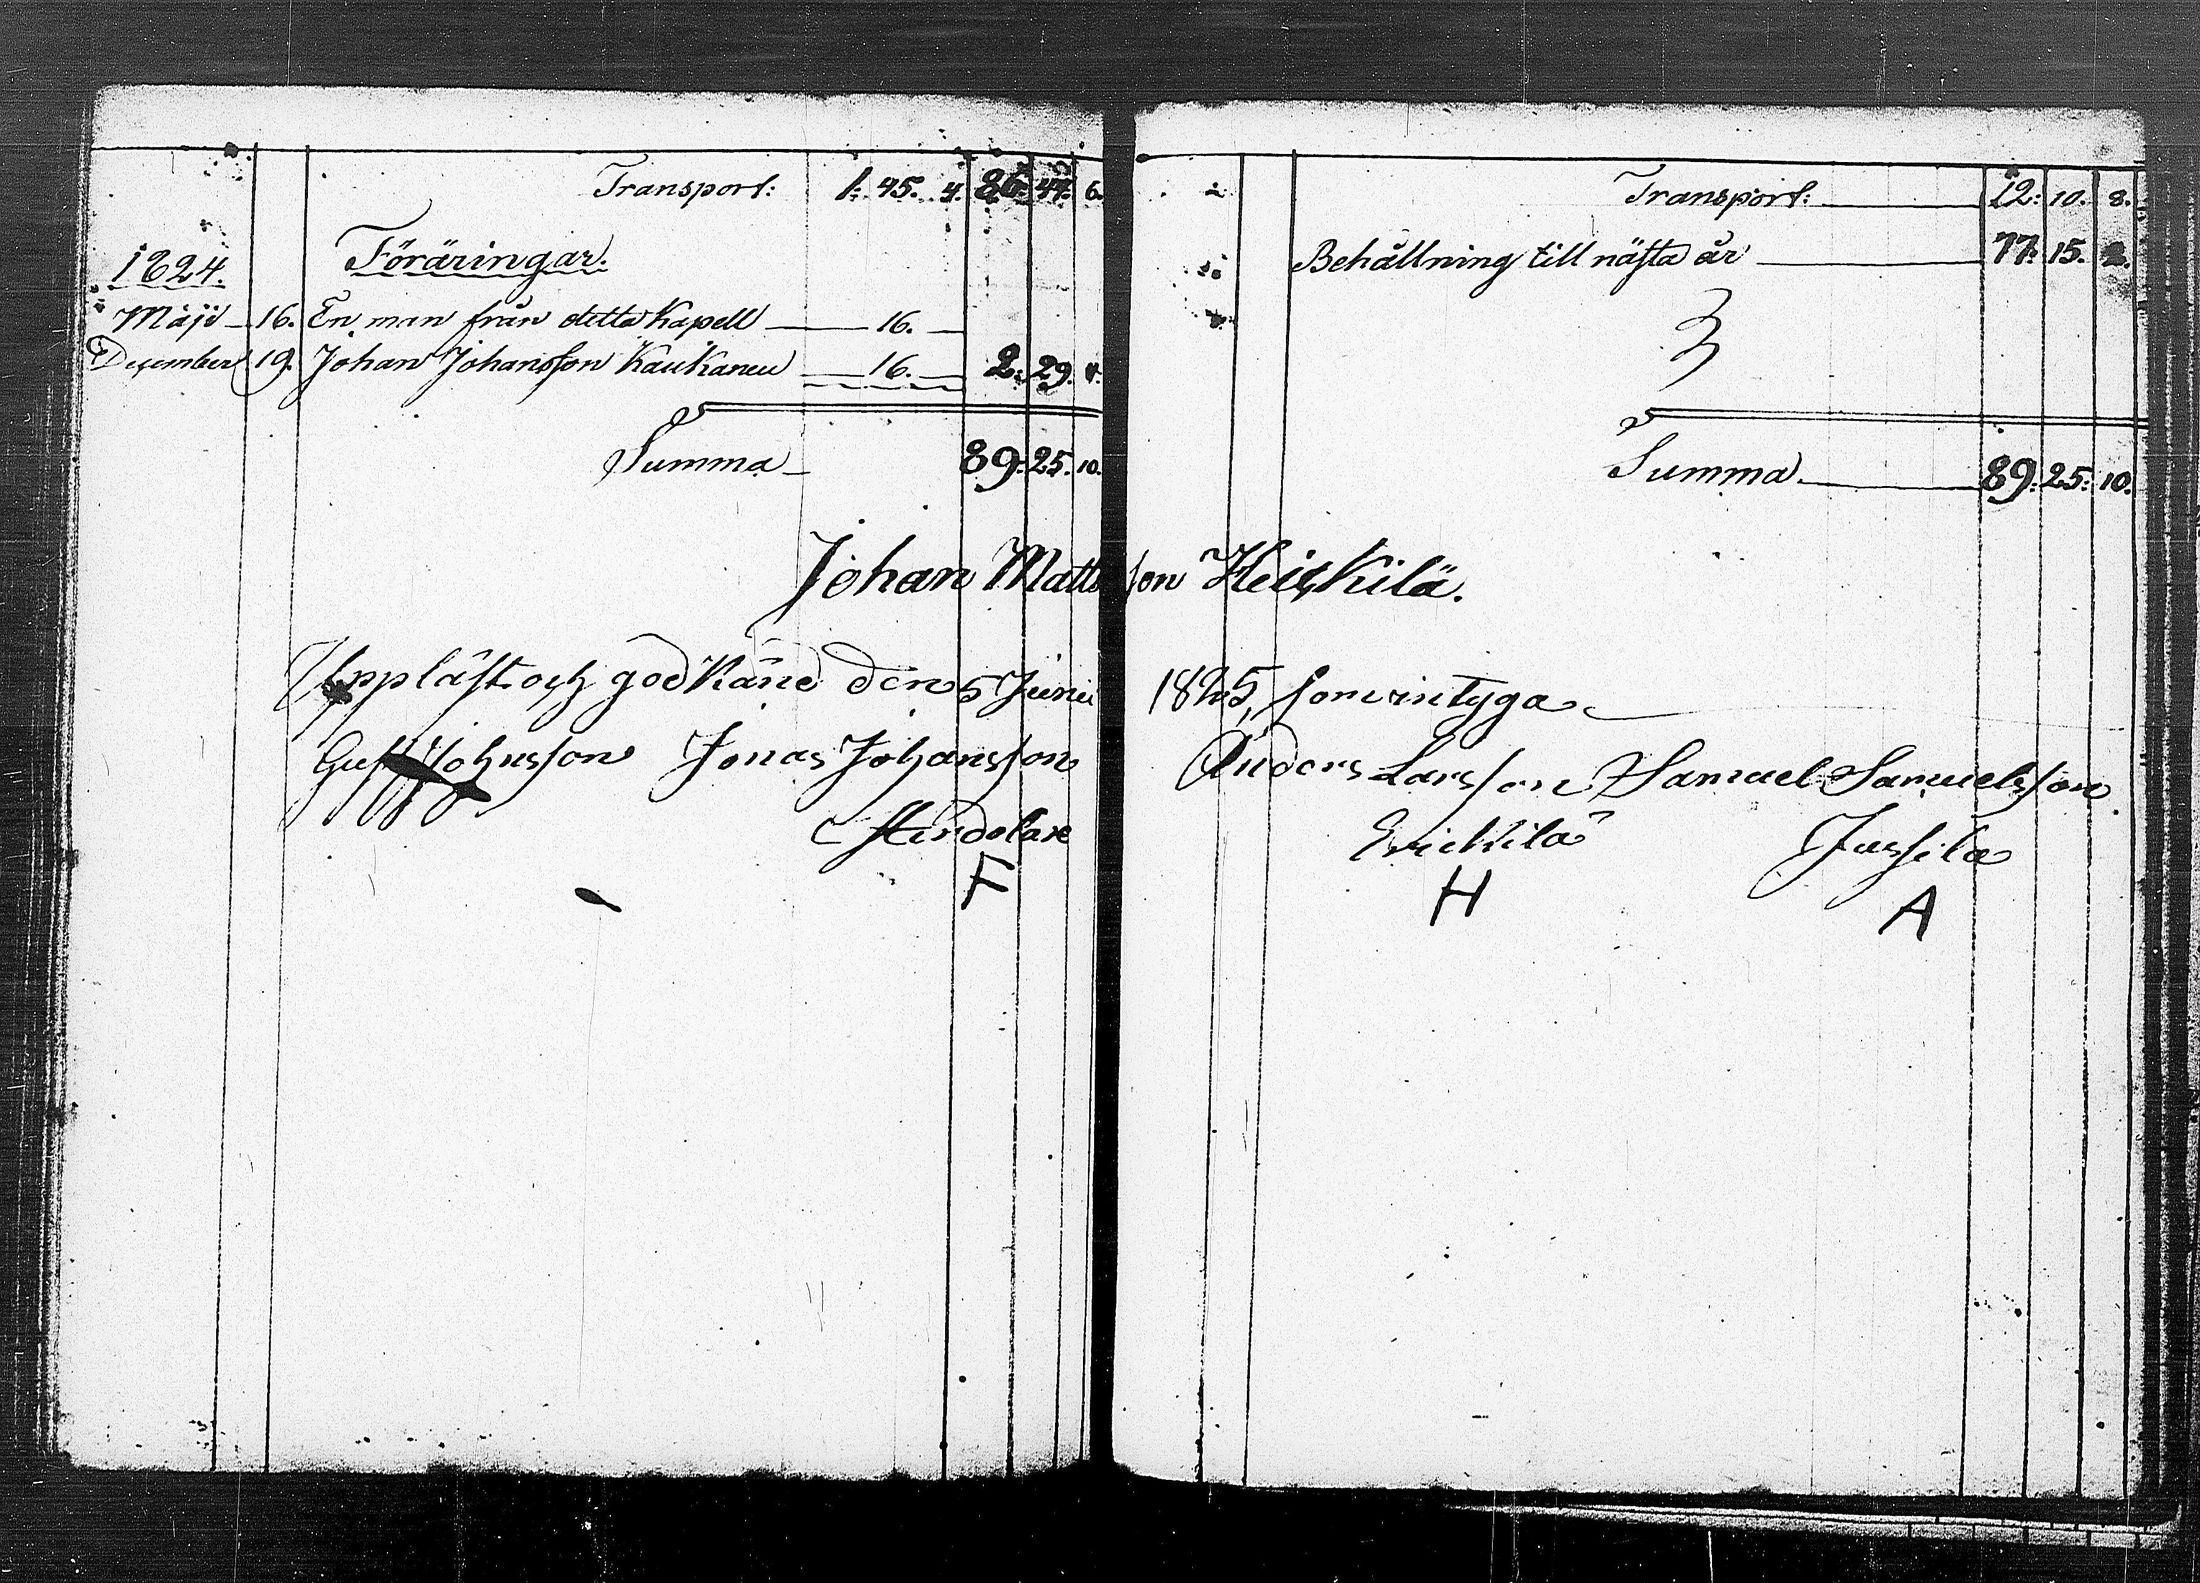 Transport: 1: 45. 4. 86: 44. 6.
1824. Föräringar.
Maji 16. En man från detta Kapell 16.
December 19. Johan Johansson Kaukaneu 16. 2: 29. 4.
Summa 89: 25. 10.
Transport: 12: 10. 8.
Behållning till nästa år 77: 15. 2.
Summa 89: 25: 10.
Johan Mattsson Heiskilä.
Uppläst och godkänd den 5 Junii 1825, som vi intyga
Gust Johnsson Jonas Johansson Anders Larsson Samuel Samuelsson
Erickilä Jussila
F H A